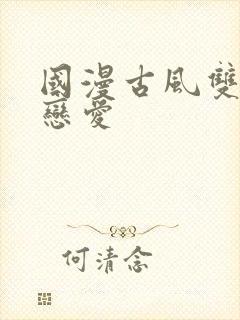 國漫古風雙
戀愛
何清念